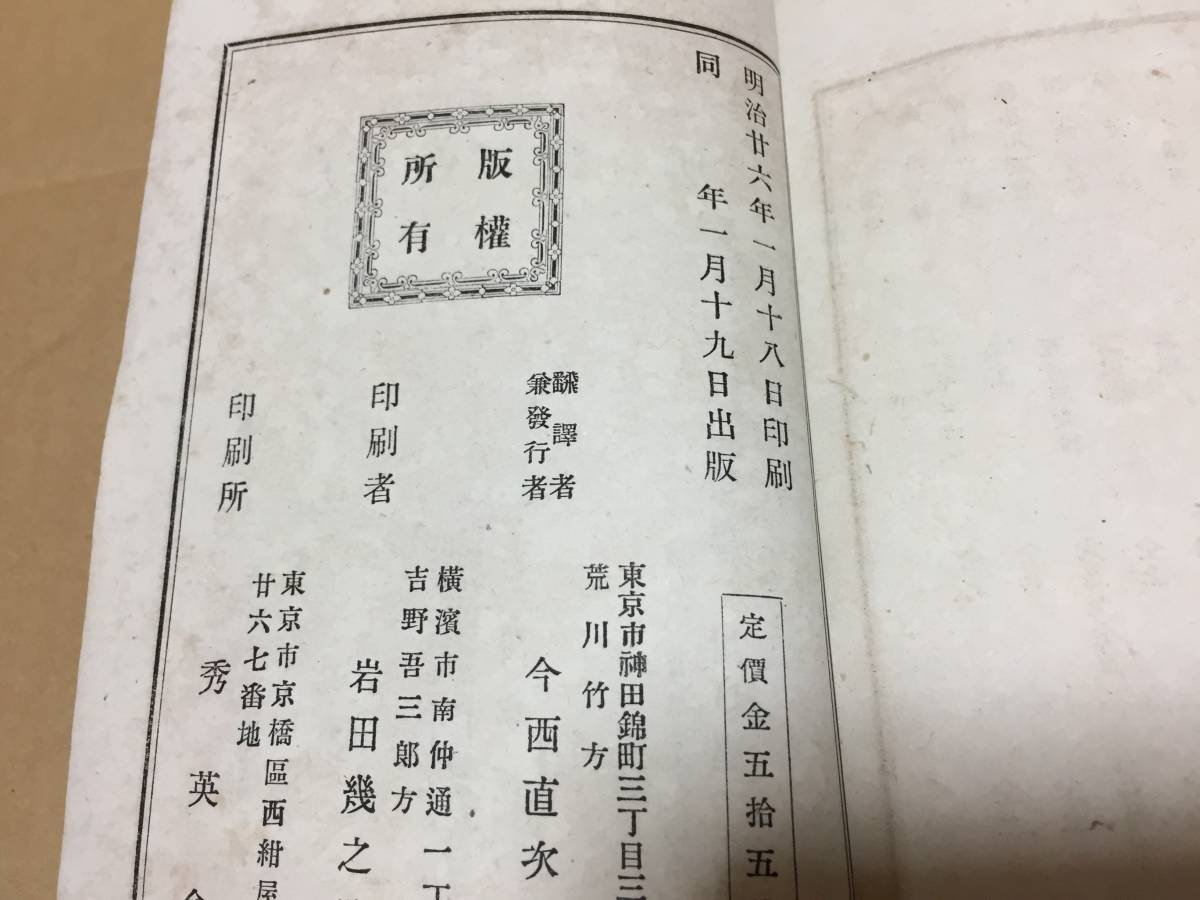 明治廿六年一月十八日印刷
同年一月十九日出版
版權
所有
定價金五拾五
東京市神田錦町三丁目三
荒川竹方
飜譯者
兼發行者
今西直次
橫濱市南仲通一丁
吉野吾三郎方
印刷者
岩田幾之
東京市京橋區西紺屋
廿六七番地
印刷所
秀英